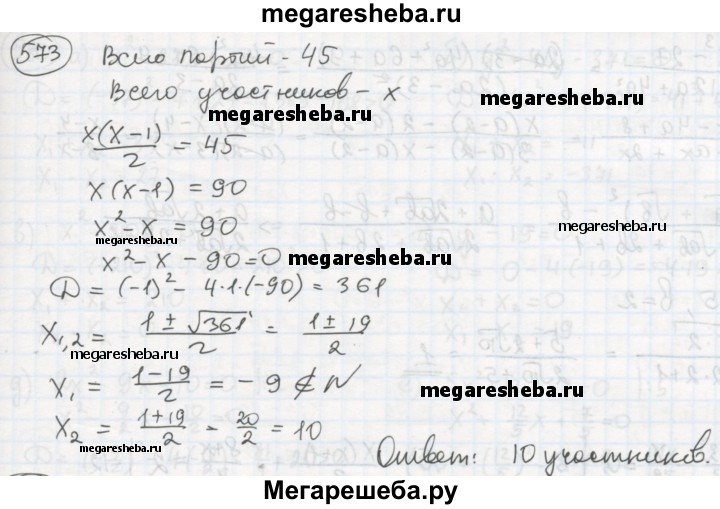 megaresheba.ru
573 Всего партий - 45
Всего участников - x
megaresheba.ru
megaresheba.ru
x(x-1)/2 = 45
x(x-1) = 90
x² - x = 90
megaresheba.ru
megaresheba.ru
x² - x - 90 = 0
megaresheba.ru
D = (-1)² - 4·1·(-90) = 361
x₁,₂ = (1 ± √361)/2 = (1 ± 19)/2
megaresheba.ru
x₁ = (1-19)/2 = -9 ∉ N
megaresheba.ru
x₂ = (1+19)/2 - 20/2 = 10
megaresheba.ru
Ответ: 10 участников.
Мегарешеба.ру